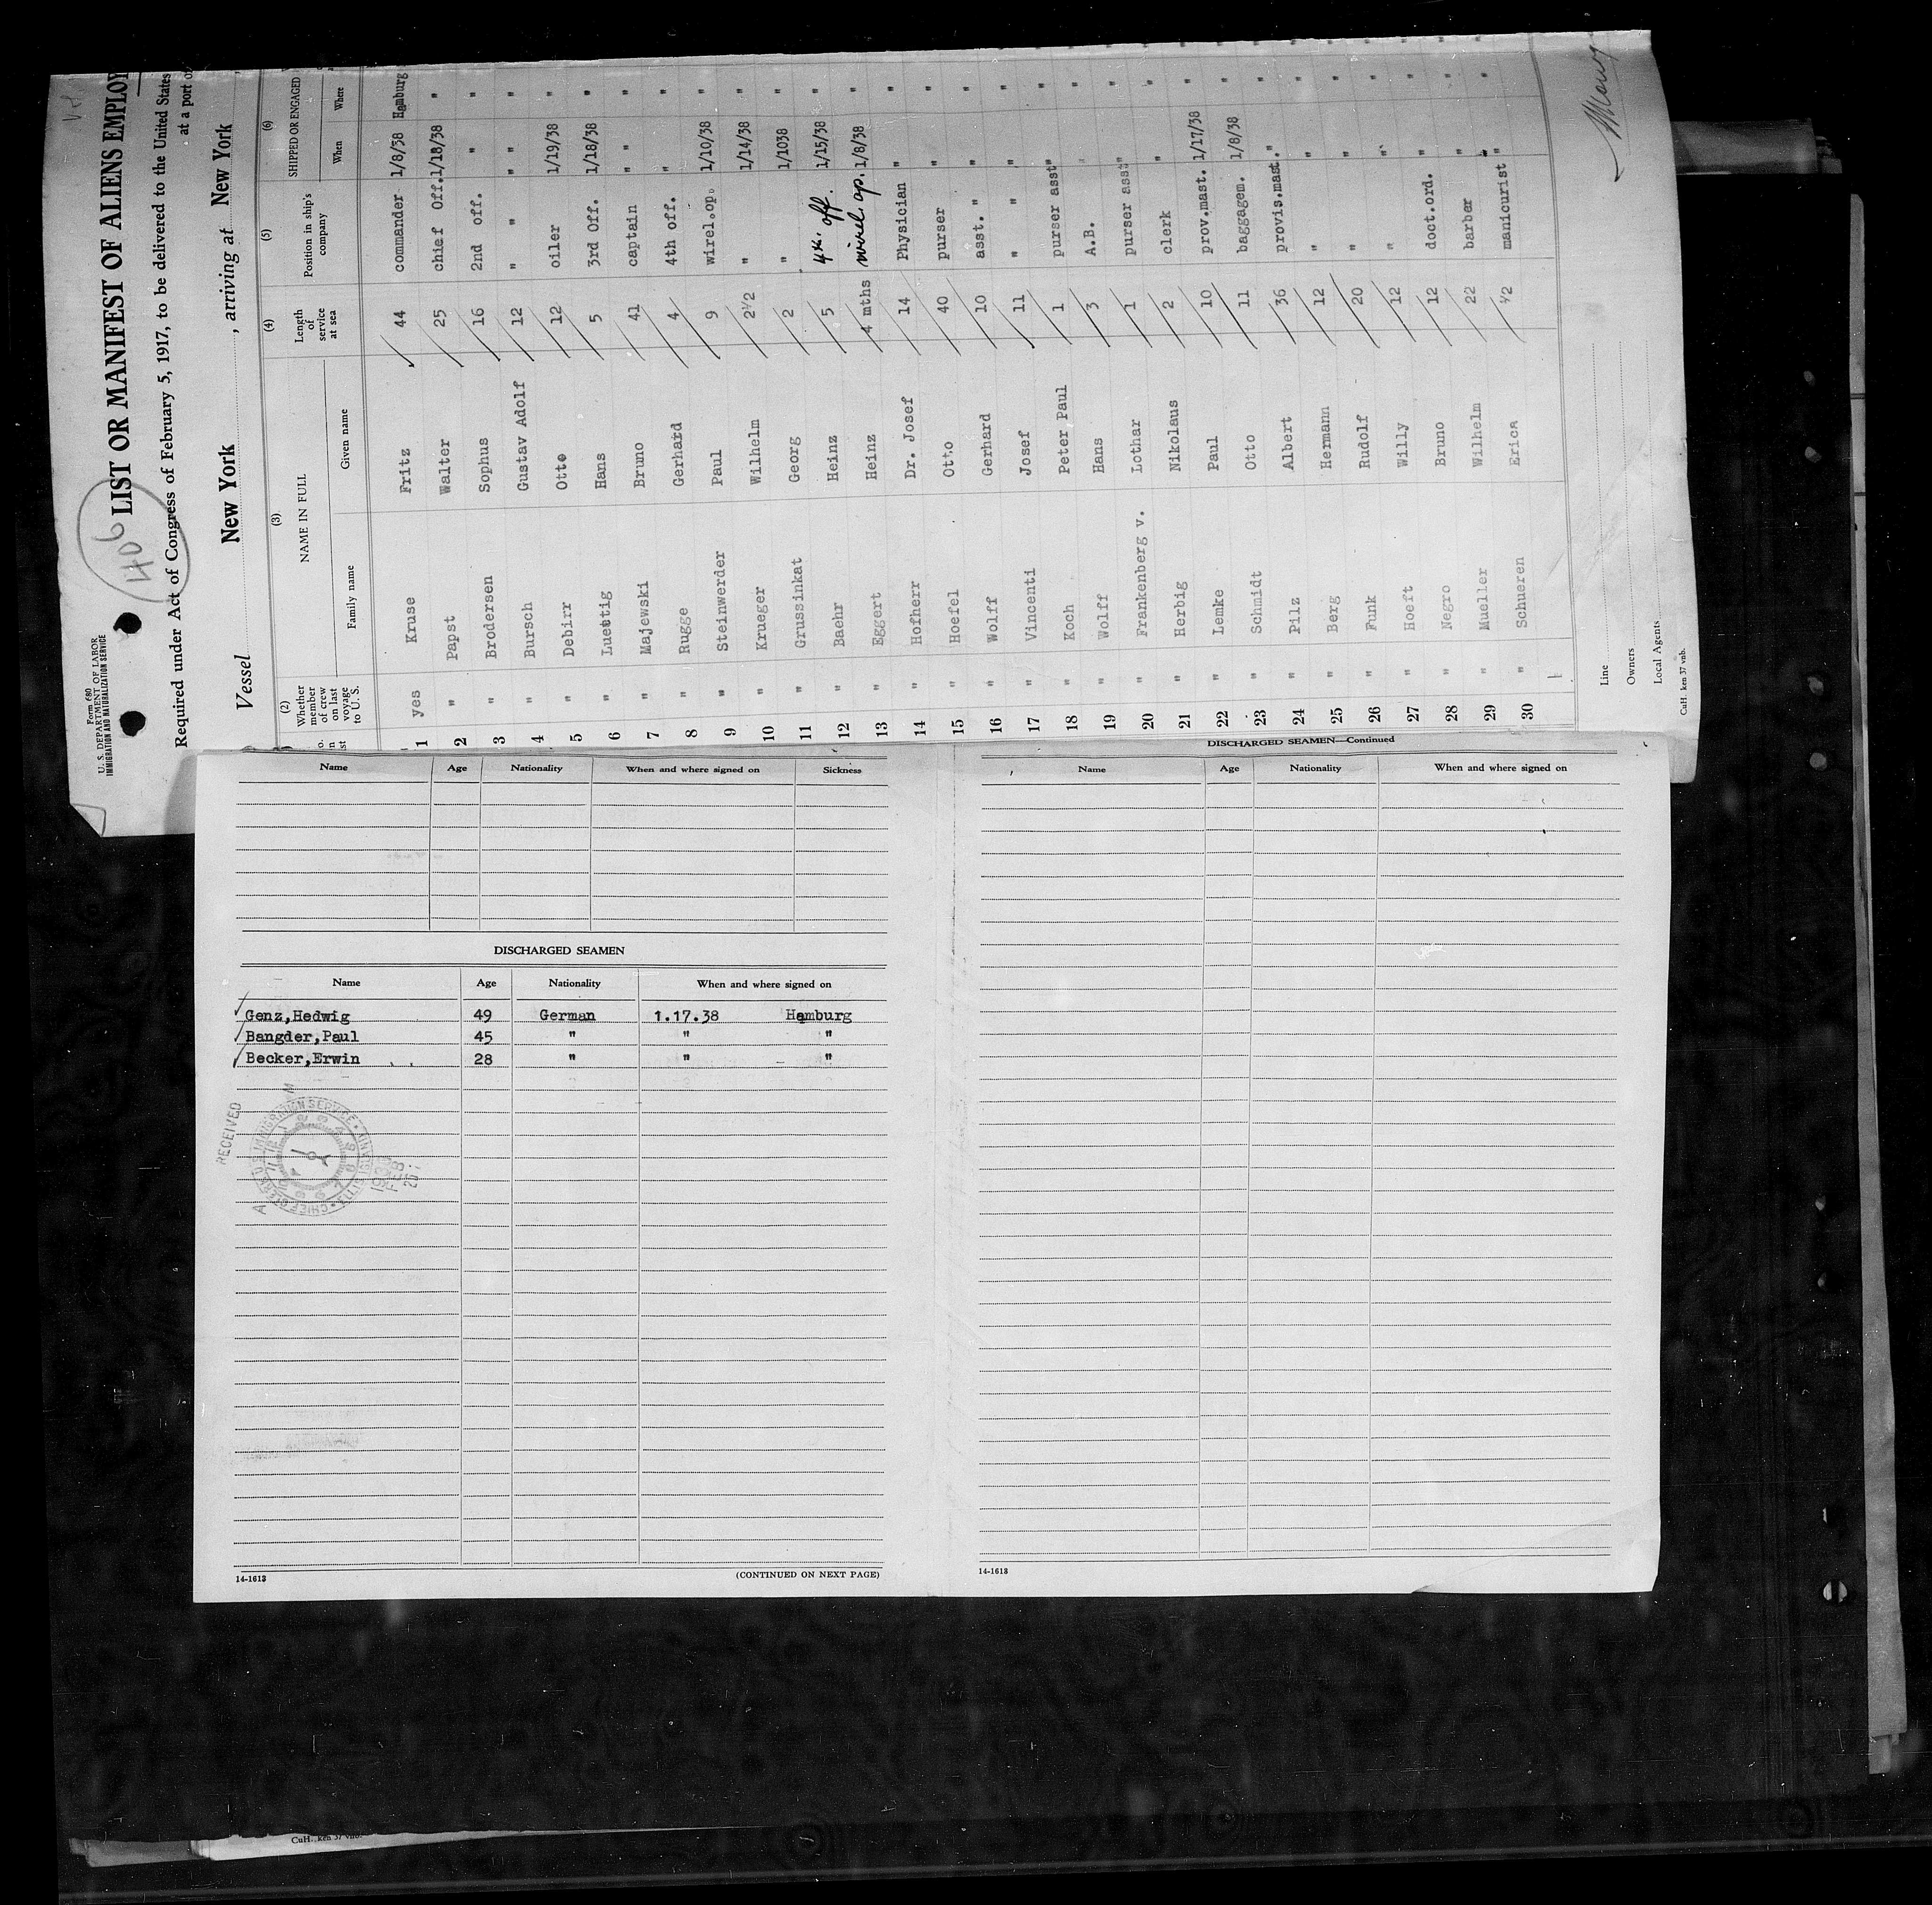 Form 680
U. S. DEPARTMENT OF LABOR
IMMIGRATION AND NATURALIZATION SERVICE
406
LIST OR MANIFEST OF ALIENS EMPLOY
Required under Act of Congress of February 5, 1917, to be delivered to the United States
at a port o
Vessel New York , arriving at New York
(2) (3) (4) (5) (6)
Whether member of crew on last voyage to U. S. NAME IN FULL Length of service at sea Position in ship's company SHIPPED OR ENGAGED
Family name Given name When Where
1 yes Kruse Fritz 44 commander 1/8/38 Hamburg
2 " Papst Walter 25 chief Off. 1/18/38 "
3 " Brodersen Sophus 16 2nd off. " "
4 " Bursch Gustav Adolf 12 " " " "
5 " Debirr Otto 12 oiler 1/19/38 "
6 " Luettig Hans 5 3rd Off. 1/18/38 "
7 " Majewski Bruno 41 captain " " "
8 " Rugge Gerhard 4 4th off. " "
9 " Steinwerder Paul 9 wirel.op. 1/10/38 "
10 " Krueger Wilhelm 2½ " 1/14/38 "
11 " Grussinkat Georg 2 " 1/1038 "
12 " Baehr Heinz 5 4th. off. 1/15/38 "
13 " Eggert Heinz 4 mths wirel. op. 1/8/38 "
14 " Hofherr Dr. Josef 14 Physician " "
15 " Hoefel Otto 40 purser " "
16 " Wolff Gerhard 10 asst. " " "
17 " Vincenti Josef 11 " " " "
18 " Koch Peter Paul 1 purser asst " "
19 " Wolff Hans 3 A.B. " "
20 " Frankenberg v. Lothar 1 purser asst " "
21 " Herbig Nikolaus 2 clerk " "
22 " Lemke Paul 10 prov.mast. 1/17/38 "
23 " Schmidt Otto 11 baggagem. 1/8/38 "
24 " Pilz Albert 36 provis.mast. " "
25 " Berg Hermann 12 " " "
26 " Funk Rudolf 20 " " "
27 " Hoeft Willy 12 " " "
28 " Negro Bruno 12 doct.ord. " "
29 " Mueller Wilhelm 22 barber " "
30 " Schueren Erica ½ manicurist " "
Line
Owners
Local Agents
CuH. ken 37 vnb.
Name Age Nationality When and where signed on Sickness
DISCHARGED SEAMEN
Name Age Nationality When and where signed on
Genz,Hedwig 49 German 1.17.38 Hamburg
Bangder,Paul 45 " " "
Becker,Erwin 28 " " "
RECEIVED
14-1613
(CONTINUED ON NEXT PAGE)
DISCHARGED SEAMEN—Continued
Name Age Nationality When and where signed on
14-1613
CuH. ken 37 vnb.